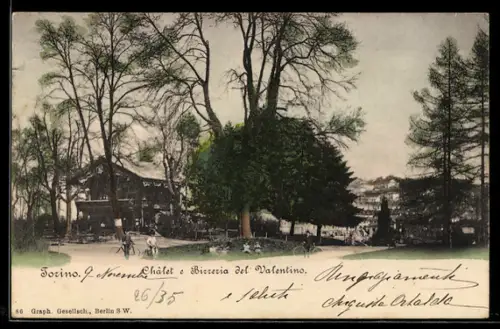 Torino. 9 Novembre Châlet e Birreria del Valentino.
26/35
Ringraziamenti
e saluti
Augusta
66 Graph. Gesellsch., Berlin S·W.